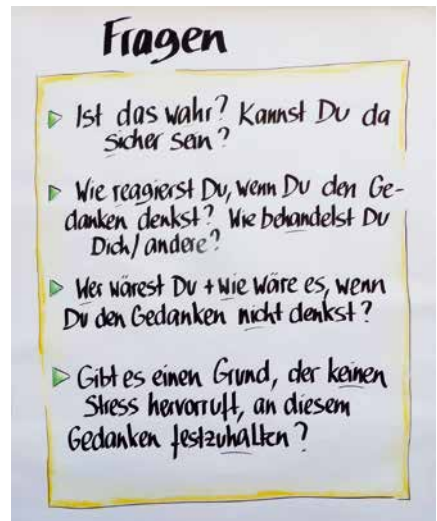 Fragen
Ist das wahr? Kannst Du da
sicher sein?
Wie reagierst Du, wenn Du den Ge-
danken denkst? Wie behandelst Du
Dich/andere?
Wer wärest Du + wie wäre es, wenn
Du den Gedanken nicht denkst?
Gibt es einen Grund, der keinen
Stress hervorruft, an diesem
Gedanken festzuhalten?